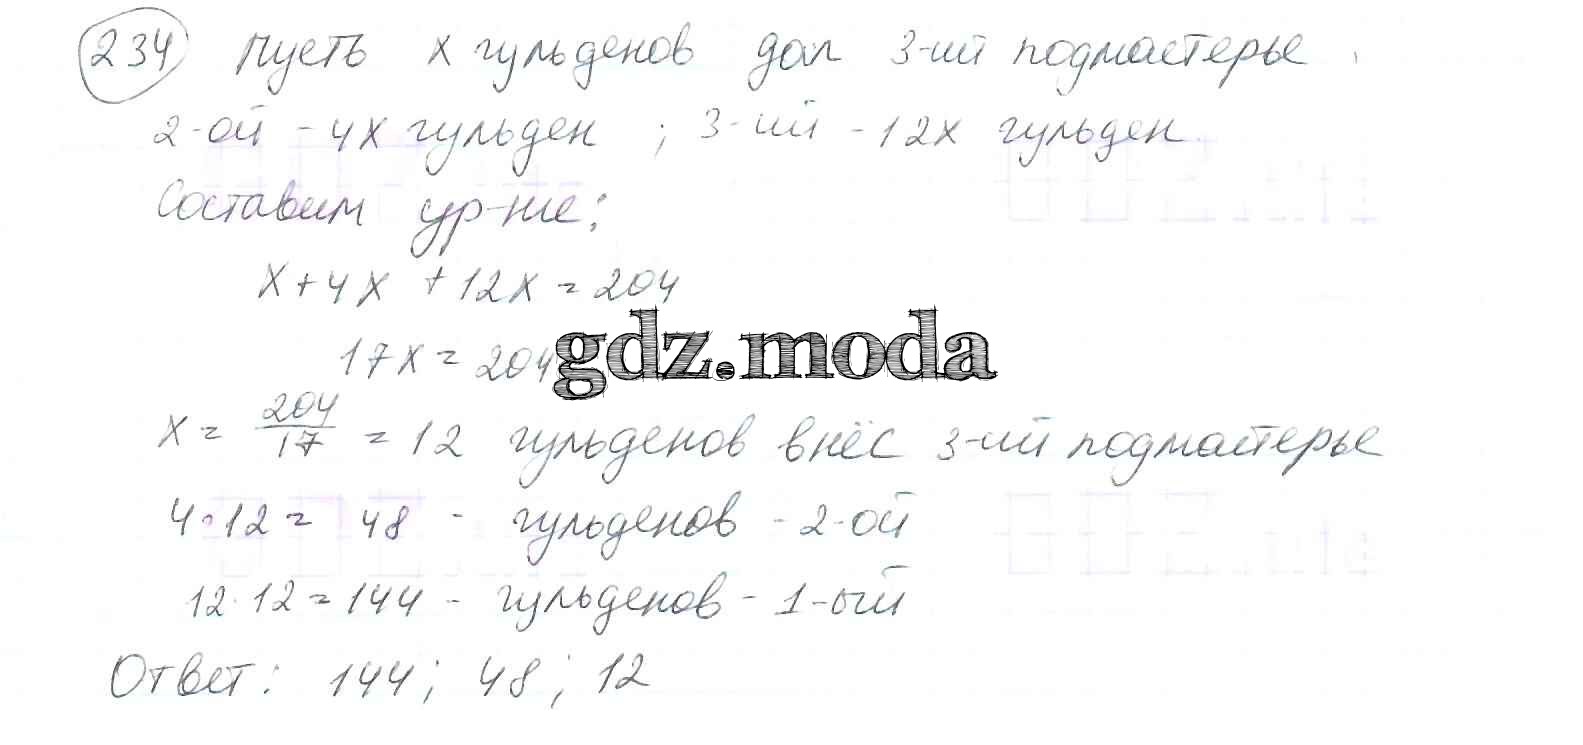 234 Пусть х гульденов дал 3-ий подмастерье.
2-ой - 4х гульден ; 3-ий - 12х гульден
Составим ур-ние:
х + 4х + 12х = 204
17х = 204
gdz.moda
х = 204/17 = 12 гульденов внёс 3-ий подмастерье
4·12 = 48 - гульденов - 2-ой
12·12 = 144 - гульденов - 1-ый
Ответ: 144; 48; 12